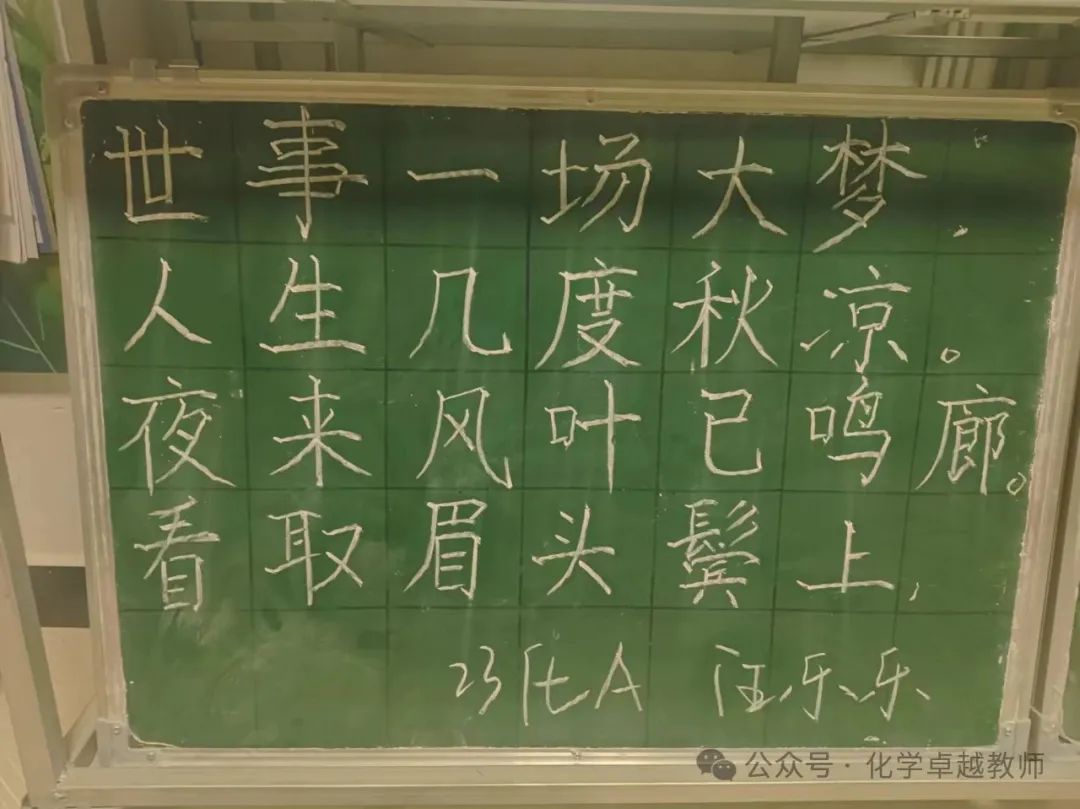 世事一场大梦.
人生几度秋凉。
夜来风叶已鸣廊。
看取眉头鬓上,
23化A 汪乐乐
公众号·化学卓越教师